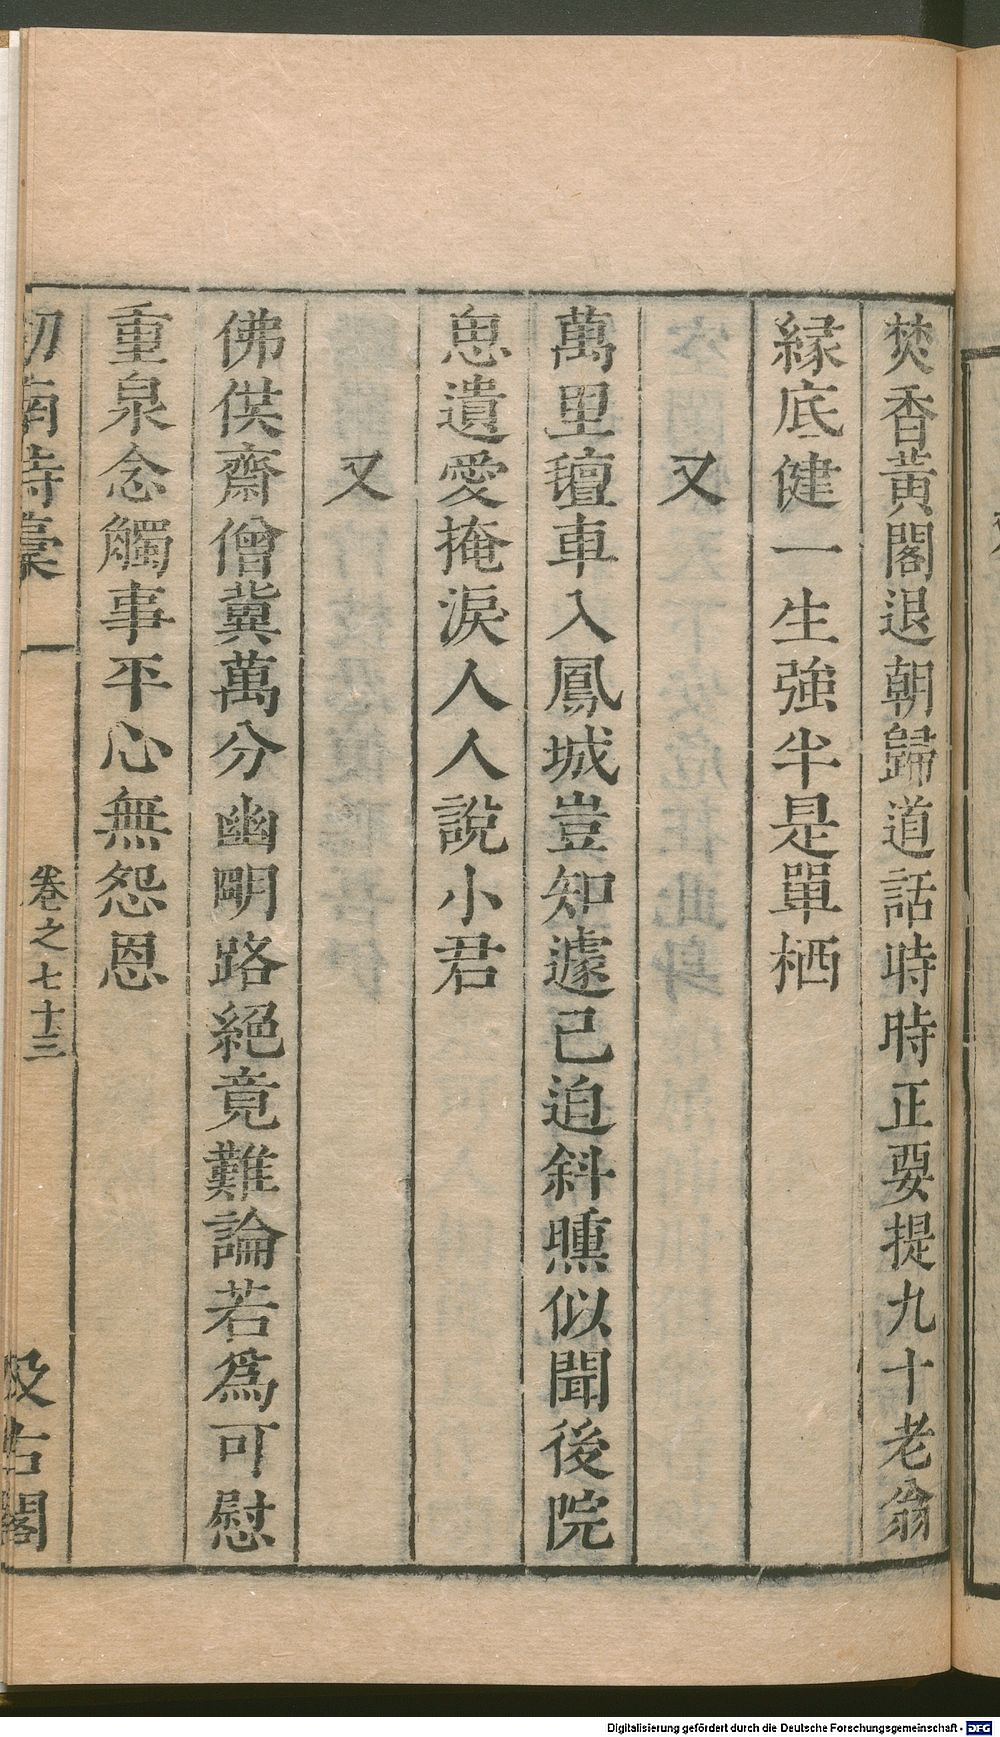 焚香黃閣退朝歸道話時時正要提九十老翁
緣底健一生強半是單栖
又
萬里氊車入鳳城豈知遽已迫斜曛似聞後院
思遺愛掩淚人人說小君
又
佛供齋僧冀萬分幽明路絕竟難論若爲可慰
重泉念觸事平心無怨恩
劒南詩稾
卷之七十三
汲古閣
Digitalisierung gefördert durch die Deutsche Forschungsgemeinschaft - DFG